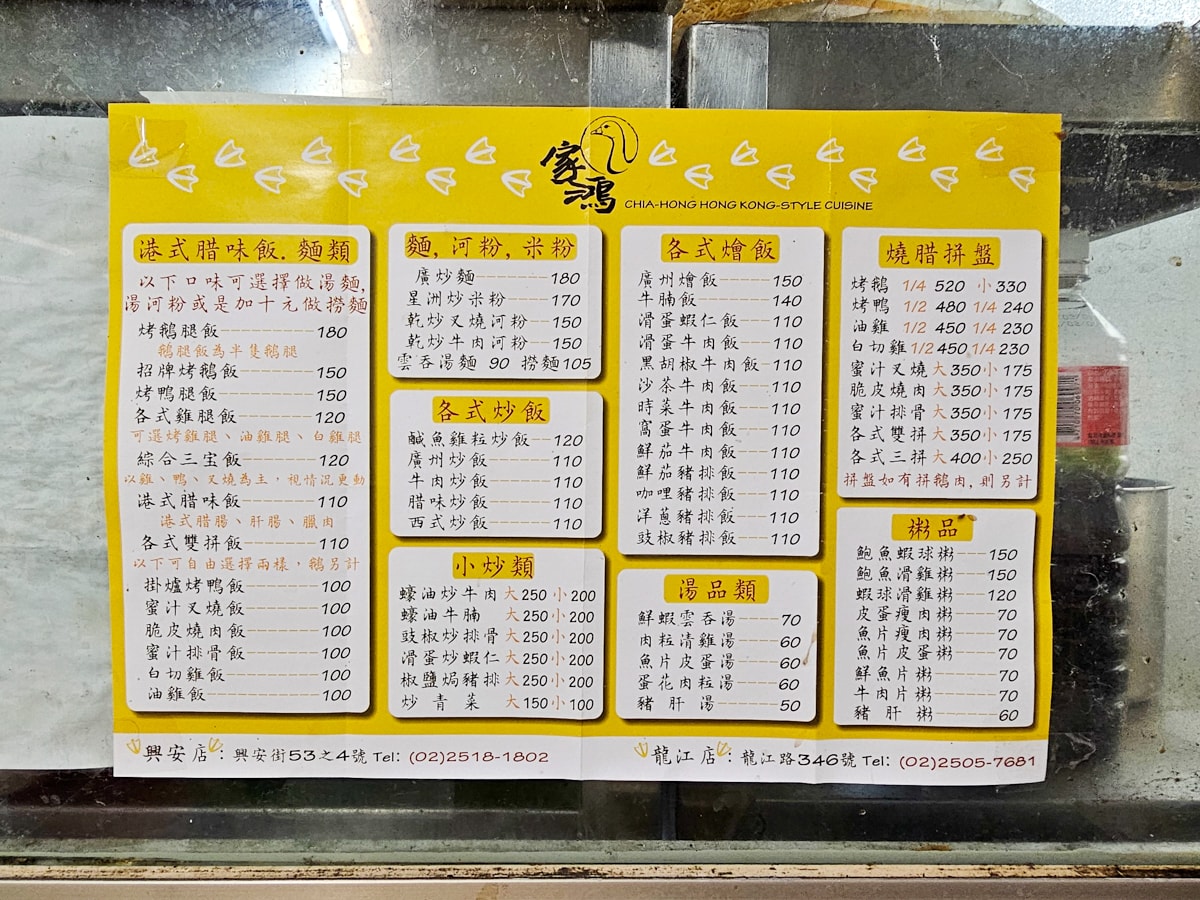 家鴻
CHIA-HONG HONG KONG-STYLE CUISINE
港式腊味飯.麵類
以下口味可選擇做湯麵,
湯河粉或是加十元做撈麵
烤鵝腿飯 180
鵝腿飯為半隻鵝腿
招牌烤鵝飯 150
烤鴨腿飯 150
各式雞腿飯 120
可選烤雞腿、油雞腿、白雞腿
綜合三宝飯 120
以雞、鴨、叉燒為主，視情況更動
港式腊味飯 110
港式腊腸、肝腸、臘肉
各式雙拼飯 110
以下可自由選擇兩樣，鵝另計
掛爐烤鴨飯 100
蜜汁叉燒飯 100
脆皮燒肉飯 100
蜜汁排骨飯 100
白切雞飯 100
油雞飯 100
麵,河粉,米粉
廣炒麵 180
星洲炒米粉 170
乾炒叉燒河粉 150
乾炒牛肉河粉 150
雲吞湯麵 90 撈麵105
各式炒飯
鹹魚雞粒炒飯 120
廣州炒飯 110
牛肉炒飯 110
腊味炒飯 110
西式炒飯 110
小炒類
蠔油炒牛肉 大250 小200
蠔油牛腩 大250 小200
豉椒炒排骨 大250 小200
滑蛋炒蝦仁 大250 小200
椒鹽焗豬排 大250 小200
炒青菜 大150 小100
各式燴飯
廣州燴飯 150
牛腩飯 140
滑蛋蝦仁飯 110
滑蛋牛肉飯 110
黑胡椒牛肉飯 110
沙茶牛肉飯 110
時菜牛肉飯 110
窩蛋牛肉飯 110
鮮茄牛肉飯 110
鮮茄豬排飯 110
咖哩豬排飯 110
洋蔥豬排飯 110
豉椒豬排飯 110
湯品類
鮮蝦雲吞湯 70
肉粒清雞湯 60
魚片皮蛋湯 60
蛋花肉粒湯 60
豬肝湯 50
燒腊拼盤
烤鵝 1/4 520 小330
烤鴨 1/2 480 1/4 240
油雞 1/2 450 1/4 230
白切雞 1/2 450 1/4 230
蜜汁叉燒 大350 小175
脆皮燒肉 大350 小175
蜜汁排骨 大350 小175
各式雙拼 大350 小175
各式三拼 大400 小250
拼盤如有拼鵝肉,則另計
粥品
鮑魚蝦球粥 150
鮑魚滑雞粥 150
蝦球滑雞粥 120
皮蛋瘦肉粥 70
魚片瘦肉粥 70
魚片皮蛋粥 70
鮮魚片粥 70
牛肉片粥 70
豬肝粥 60
興安店：興安街53之4號 Tel: (02)2518-1802
龍江店：龍江路346號 Tel: (02)2505-7681